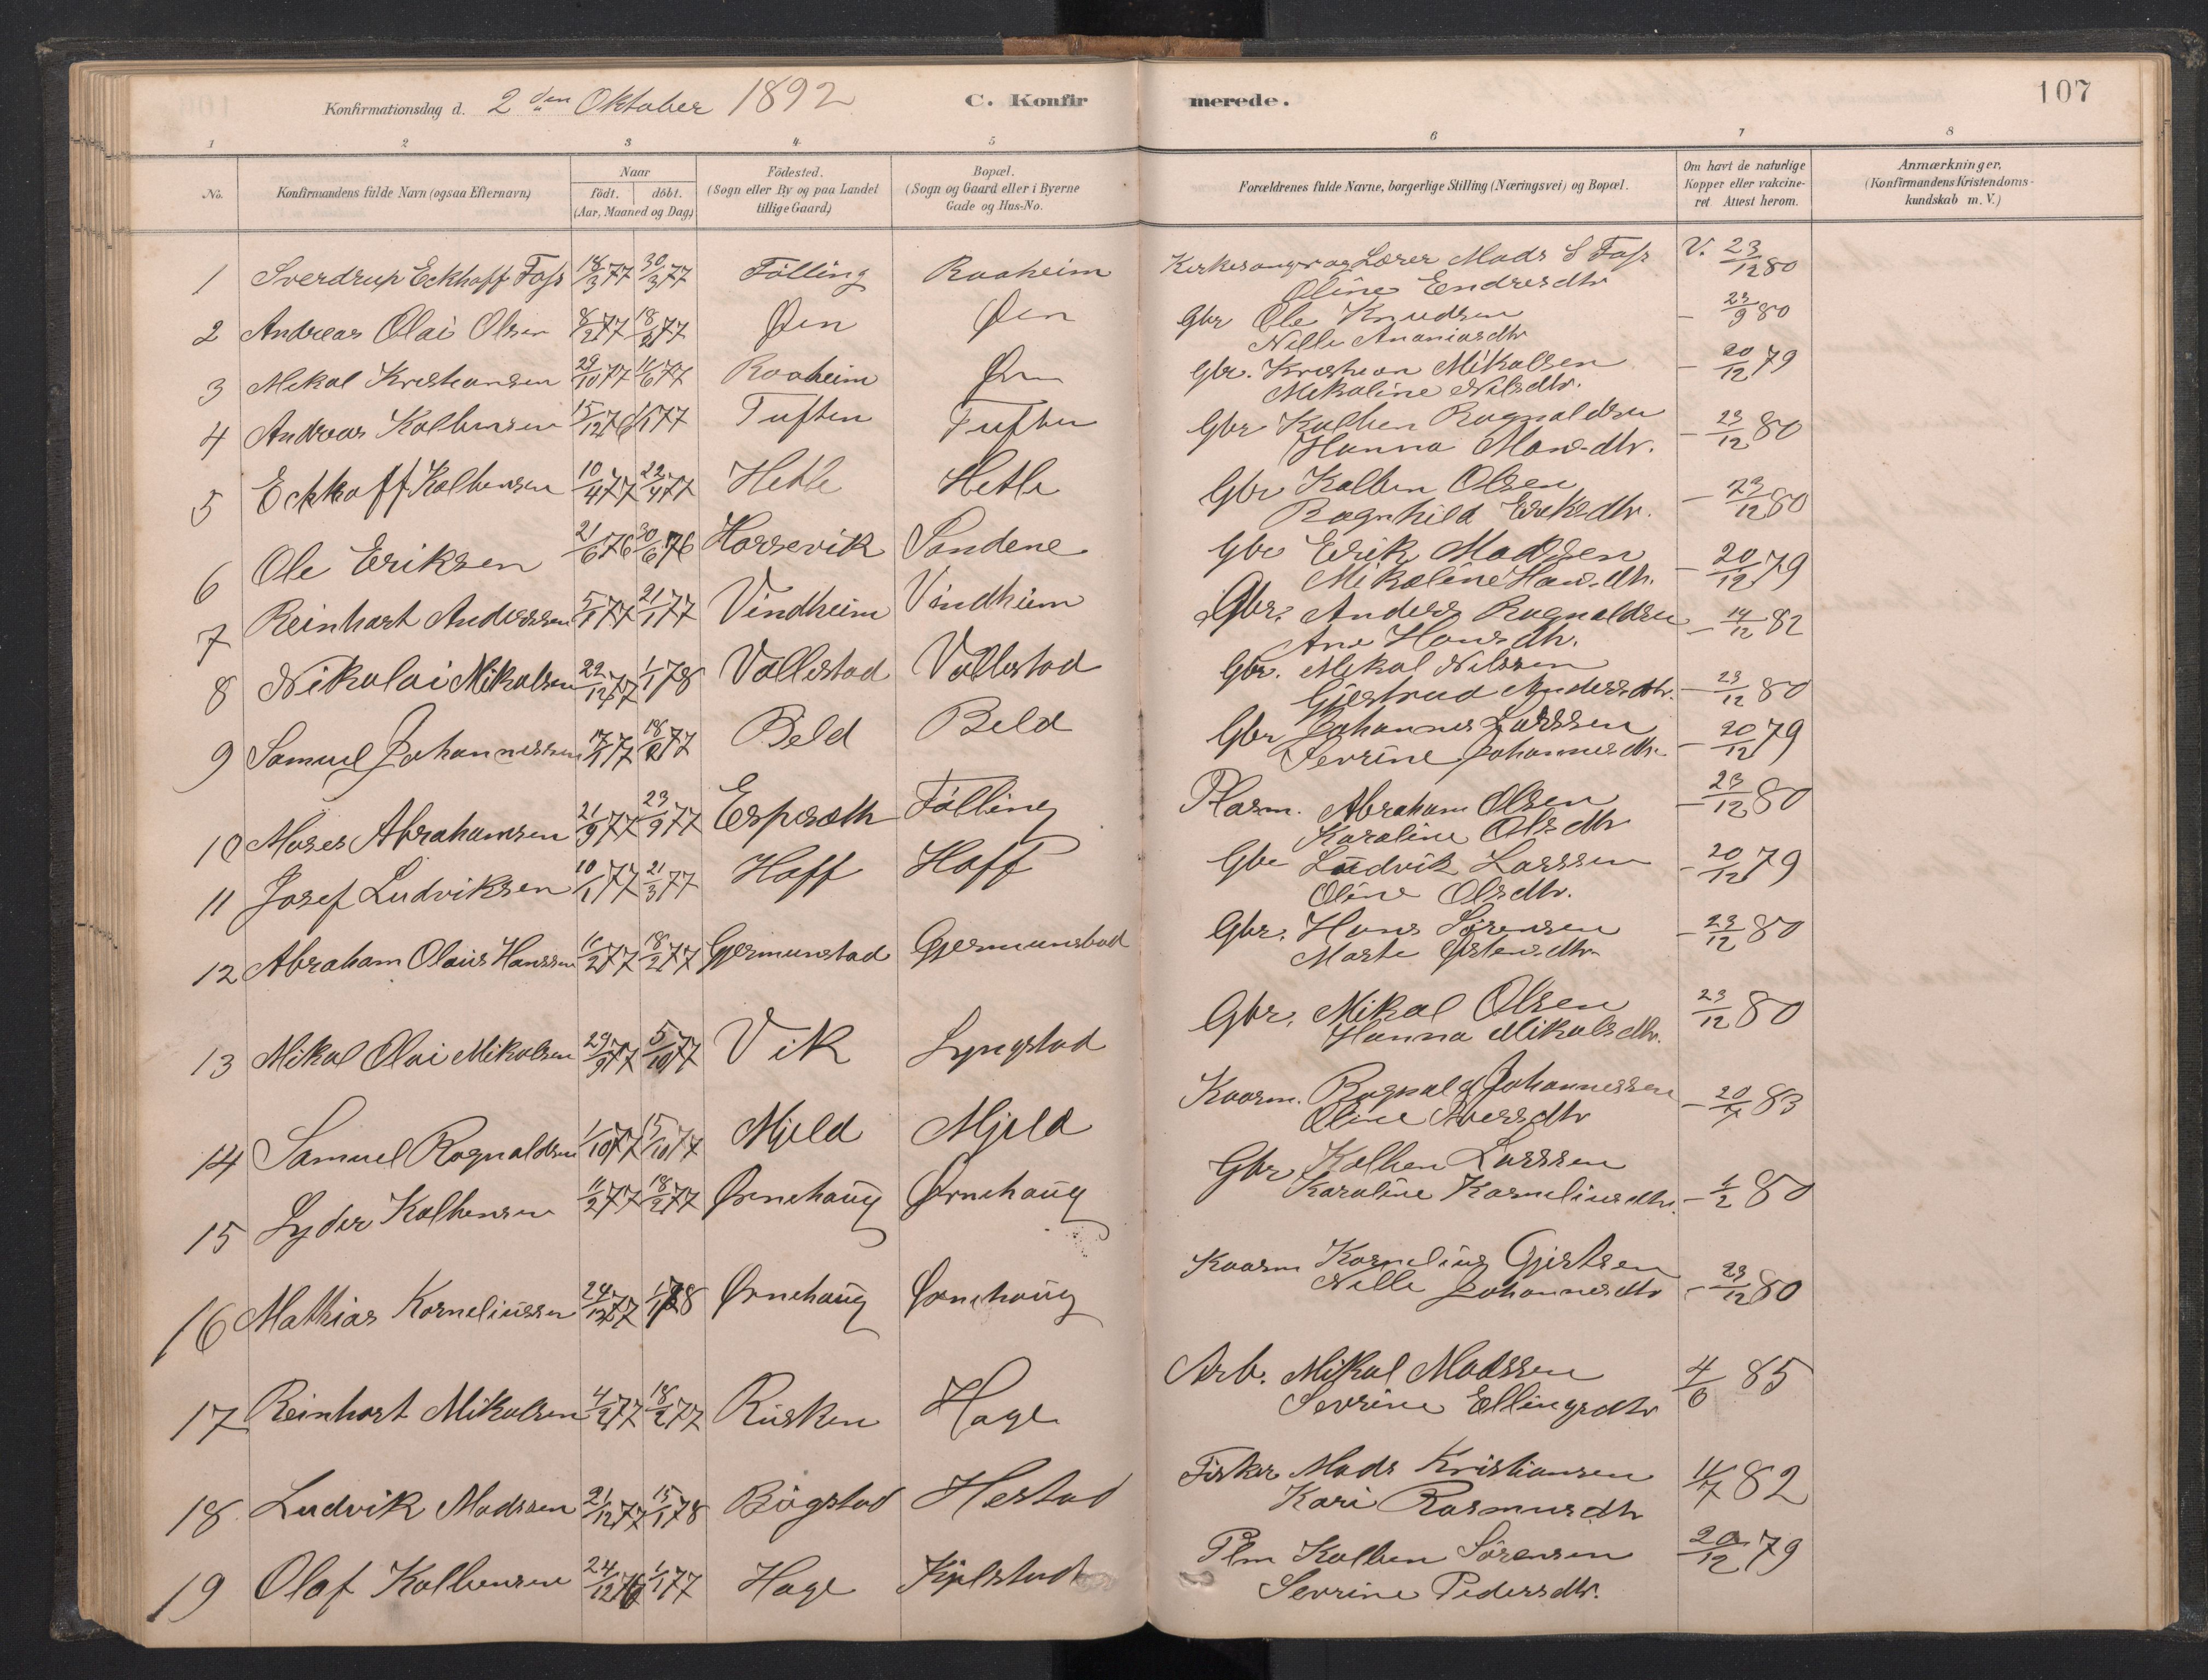 107
Konfirmationsdag d. 2den Oktober 1892 C. Konfirmerede.
1 2 3 4 5 6 7 8
No. Konfirmandens fulde Navn (ogsaa Efternavn) Naar födt. döbt. (Aar, Maaned og Dag) Födested. (Sogn eller By og paa Landet tillige Gaard) Bopæl. (Sogn og Gaard eller i Byerne Gade og Hus-No. Forældrenes fulde Navne, borgerlige Stilling (Næringsvei) og Bopæl. Om havt de naturlige Kopper eller vakcineret Attest herom. Anmærkninger, (Konfirmandens Kristendomskundskab m. V.)
1 Sverdrup Eckhoff Foss 18/3 77 30/3 77 Fölling Raaheim Kirkesanger og Lærer Mads S Foss V. 23/12 80
Oline Endresdtr
2 Andreas Olai Olsen 8/2 77 18/2 77 Øen Øen Gbr Ole Knudsen - 23/9 80
Nille Ananiasdtr
3 Mikal Kristiansen 29/10 77 Raaheim Øen Gbr. Kristian Mikalsen - 20/12 79
Mikaline Nilsdtr.
4 Andreas Kolbensen 15/12 76 1/1 77 Tuften Tuften Gbr Kolben Ragnaldsen - 23/12 80
Hanna Mons.dtr.
5 Eckhoff Kolbensen 10/4 77 22/4 77 Hetle Hetle Gbr Kolben Olsen - 23/12 80
Ragnhild Eriksdtr.
6 Ole Eriksen 21/6 76 30/6 76 Horsevik Sandene Gbr Erik Madssen - 20/12 79
Mikaline Hans.dtr.
7 Reinhart Anderssen 5/1 77 21/1 77 Vindheim Vindheim Gbr. Anders Ragnaldsen - 14/12 82
Ane Hansdtr.
8 Nikolai Mikalsen 22/12 77 1/1 78 Vallestad Vallestad Gbr. Mikal Nilssen
Gjertrud Andersdtr. - 23/12 80
9 Samuel Johannessen 17/1 77 18/2 77 Beld Beld Gbr Johannes Larssen
Serrine Johannesdtr. - 20/12 79
10 Moses Abrahamsen 21/9 77 23/9 77 Espesæth Fölling Plasm. Abraham Olsen - 23/12 80
Karoline Olsdtr
11 Josef Ludviksen 10/1 77 21/3 77 Hoff Hoff Gbr Ludvik Larssen - 20/12 79
Oline Olsdtr.
12 Abraham Olaus Hanssen 11/2 77 18/2 77 Gjermunstad Gjermunstad Gbr. Hans Sørensen - 23/12 80
Marte Østens.dtr.
13 Mikal Olai Mikalsen 29/9 77 5/10 77 Vik Lyngstad Gbr. Mikal Olsen 23/12 80
Hanna Mikalsdtr.
14 Samuel Ragnaldsen 1/10 77 15/10 77 Mjeld Mjeld Kaarm. Ragnald Johannessen
Oline Iversdtr - 83
15 Lyder Kolbensen 11/2 77 18/2 77 Ørnehaug Ørnehaug Gbr Kolben Larssen
Karoline Korneliusdtr. 80
16 Mathias Korneliussen 24/12 77 1/1 78 Ørnehaug Ørnehaug Kaarm Kornelius Gjertsen
Nille Johannesdtr - 23/12 80
17 Reinhart Mikalsen 4/2 77 18/2 77 Rusken Hage Arb. Mikal Madssen 4/6 85
Sevrine Ellingsdtr
18 Ludvik Madssen 21/12 77 13/1 78 Bögstad Hestad Fisker Mads Kristiansen 11/7 82
Kari Rasmusdtr
19 Olaf Kolbensen 24/12 76 1/1 77 Hage Kjelstad Plm Kolben Sörensen 20/12 79
Sevrine Pedersdtr.